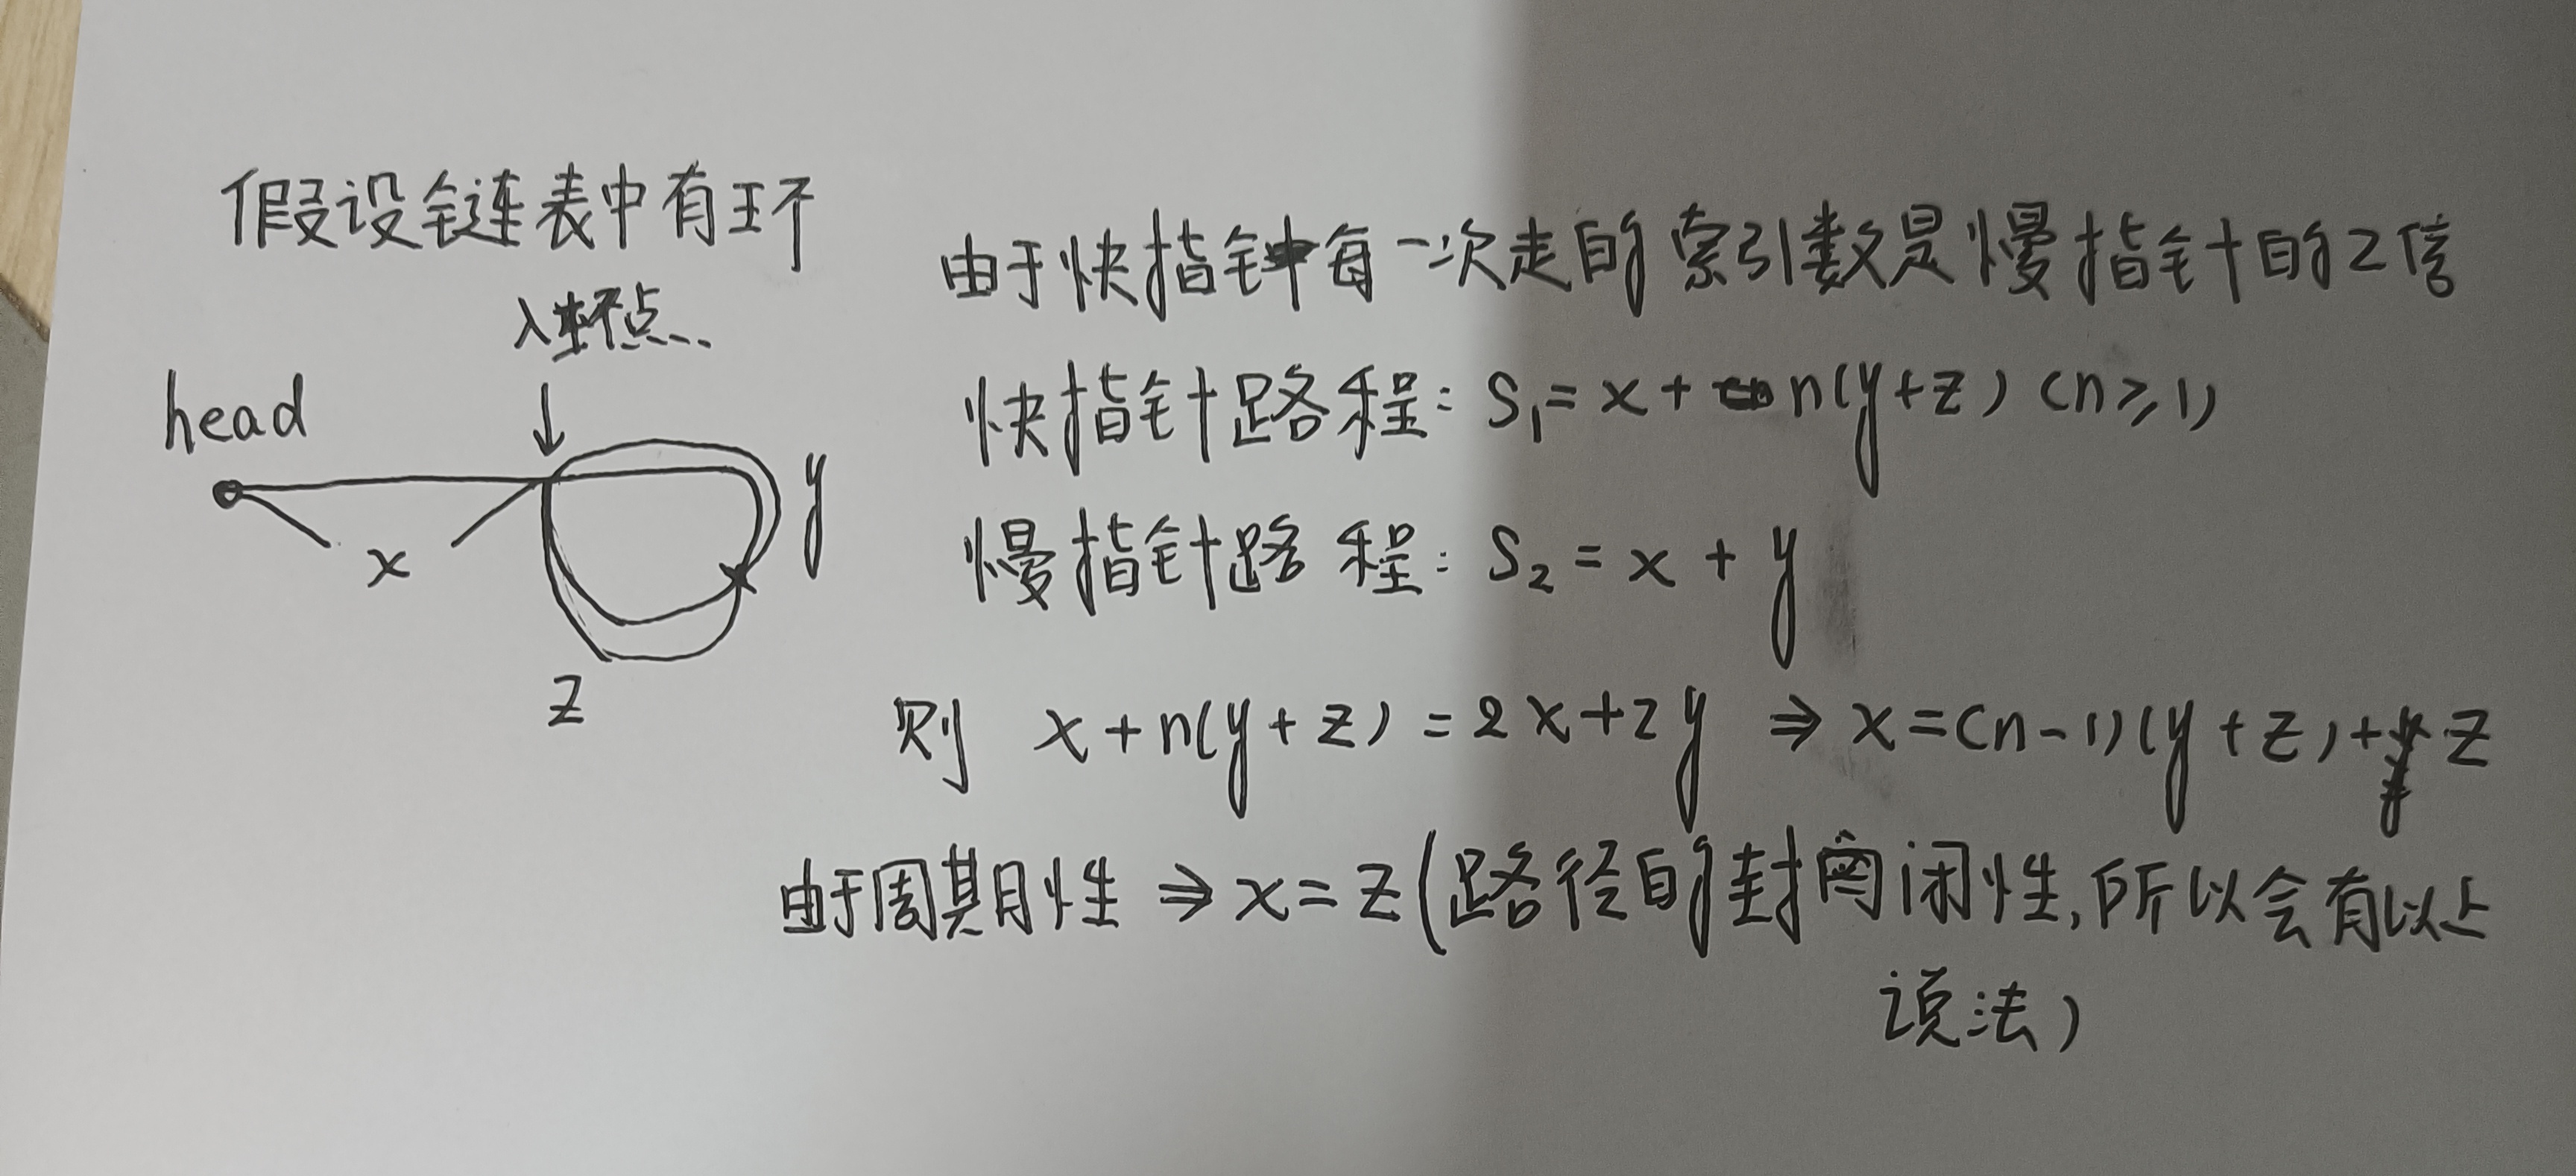 假设链表中有环
入环点
head
x
y
z
由于快指针每一次走的索引数是慢指针的2倍
快指针路程: S₁=x+n(y+z) (n≥1)
慢指针路程: S₂=x+y
则 x+n(y+z)=2x+2y ⇒ x=(n-1)(y+z)+z
由于周期性 ⇒ x=z(路径的封闭性,所以会有以上
说法)